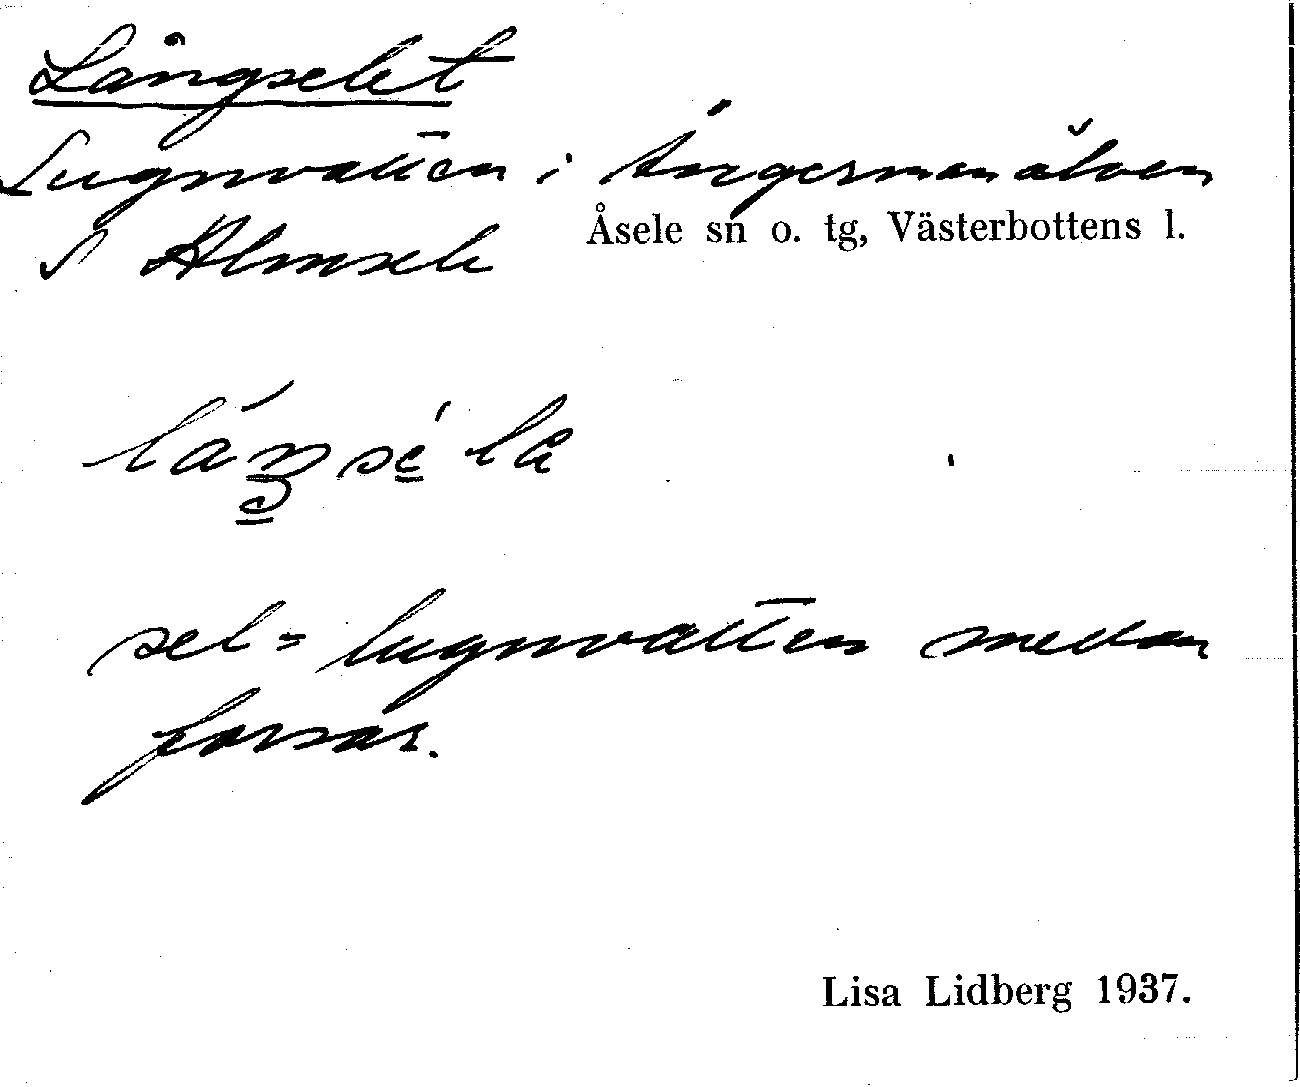 Långselet
Lugnvatten i Ångermanälven
Åsele sn o. tg, Västerbottens l.
S Almsele
sel = lugnvatten mellan
forsar.
Lisa Lidberg 1937.